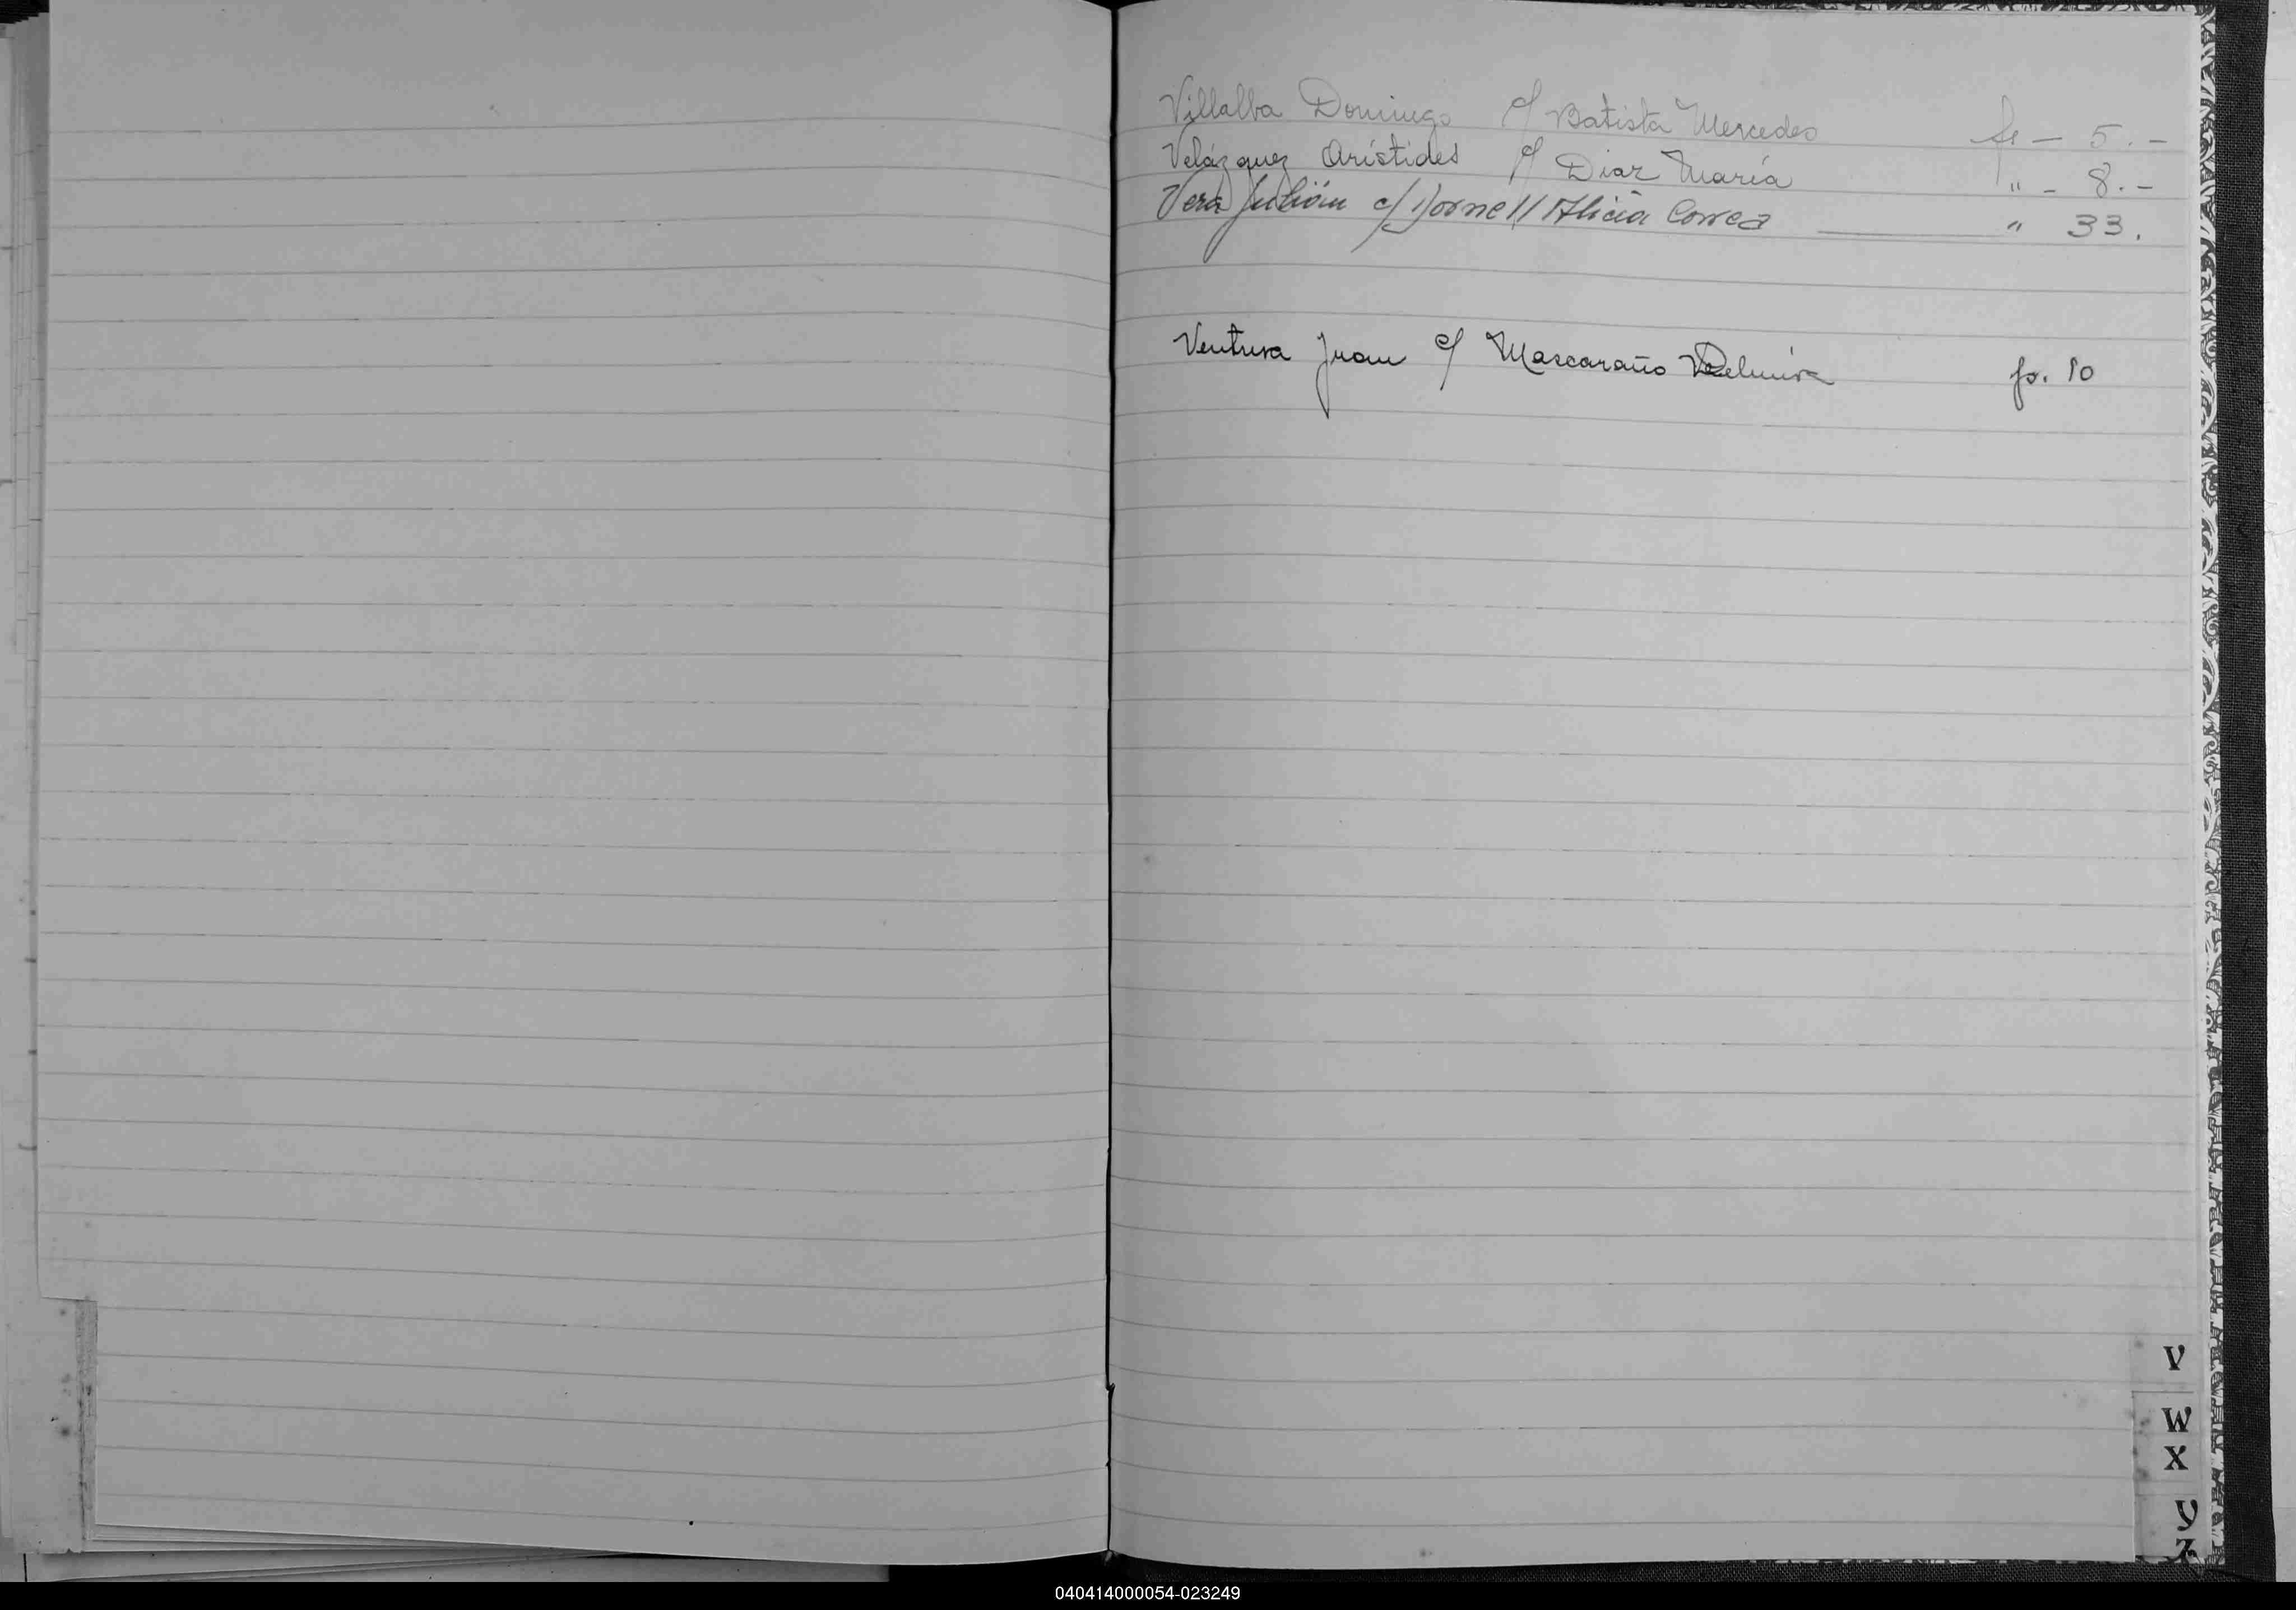 Villalba Domingo c/ Batista Mercedes fs — 5.-
Velázquez Arístides c/ Diaz María " - 8.-
Vera Julián c/ Dornell Alicia Correa " 33.
Ventura Juan c/ Mascaraño fs. 10
V
W
X
Y
Z
040414000054-023249